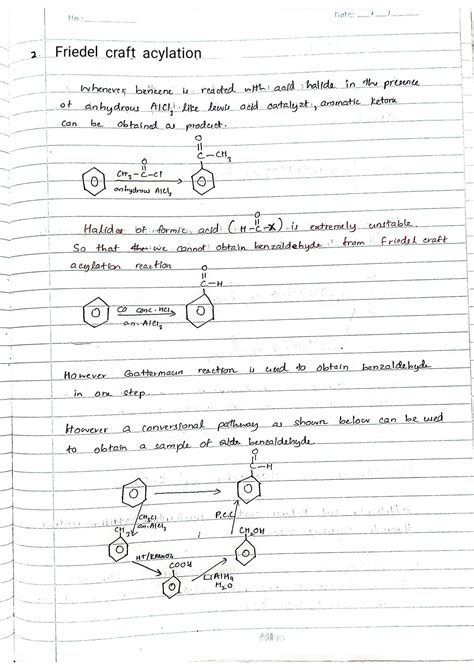 No :
Date: / /
2. Friedel craft acylation
Whenever benzene is reacted with acid halide in the presence
of anhydrous AlCl3 like lewis acid catalyst, aromatic ketone
can be obtained as product.
O
C-CH3
O
CH3-C-Cl
anhydrous AlCl3
Halides of formic acid (H-C-X) is extremely unstable
O
So that we cannot obtain benzaldehyde from Friedel craft
acylation reaction
O
C-H
CO conc.HCl
an.AlCl3
However Gattermann reaction is used to obtain benzaldehyde
in one step.
However a conversional pathway as shown below can be used
to obtain a sample of benzaldehyde
O
C-H
CH3Cl
an.AlCl3
P.C.C
CH3
CH2OH
H+/KMnO4
COOH
LiAlH4
H2O